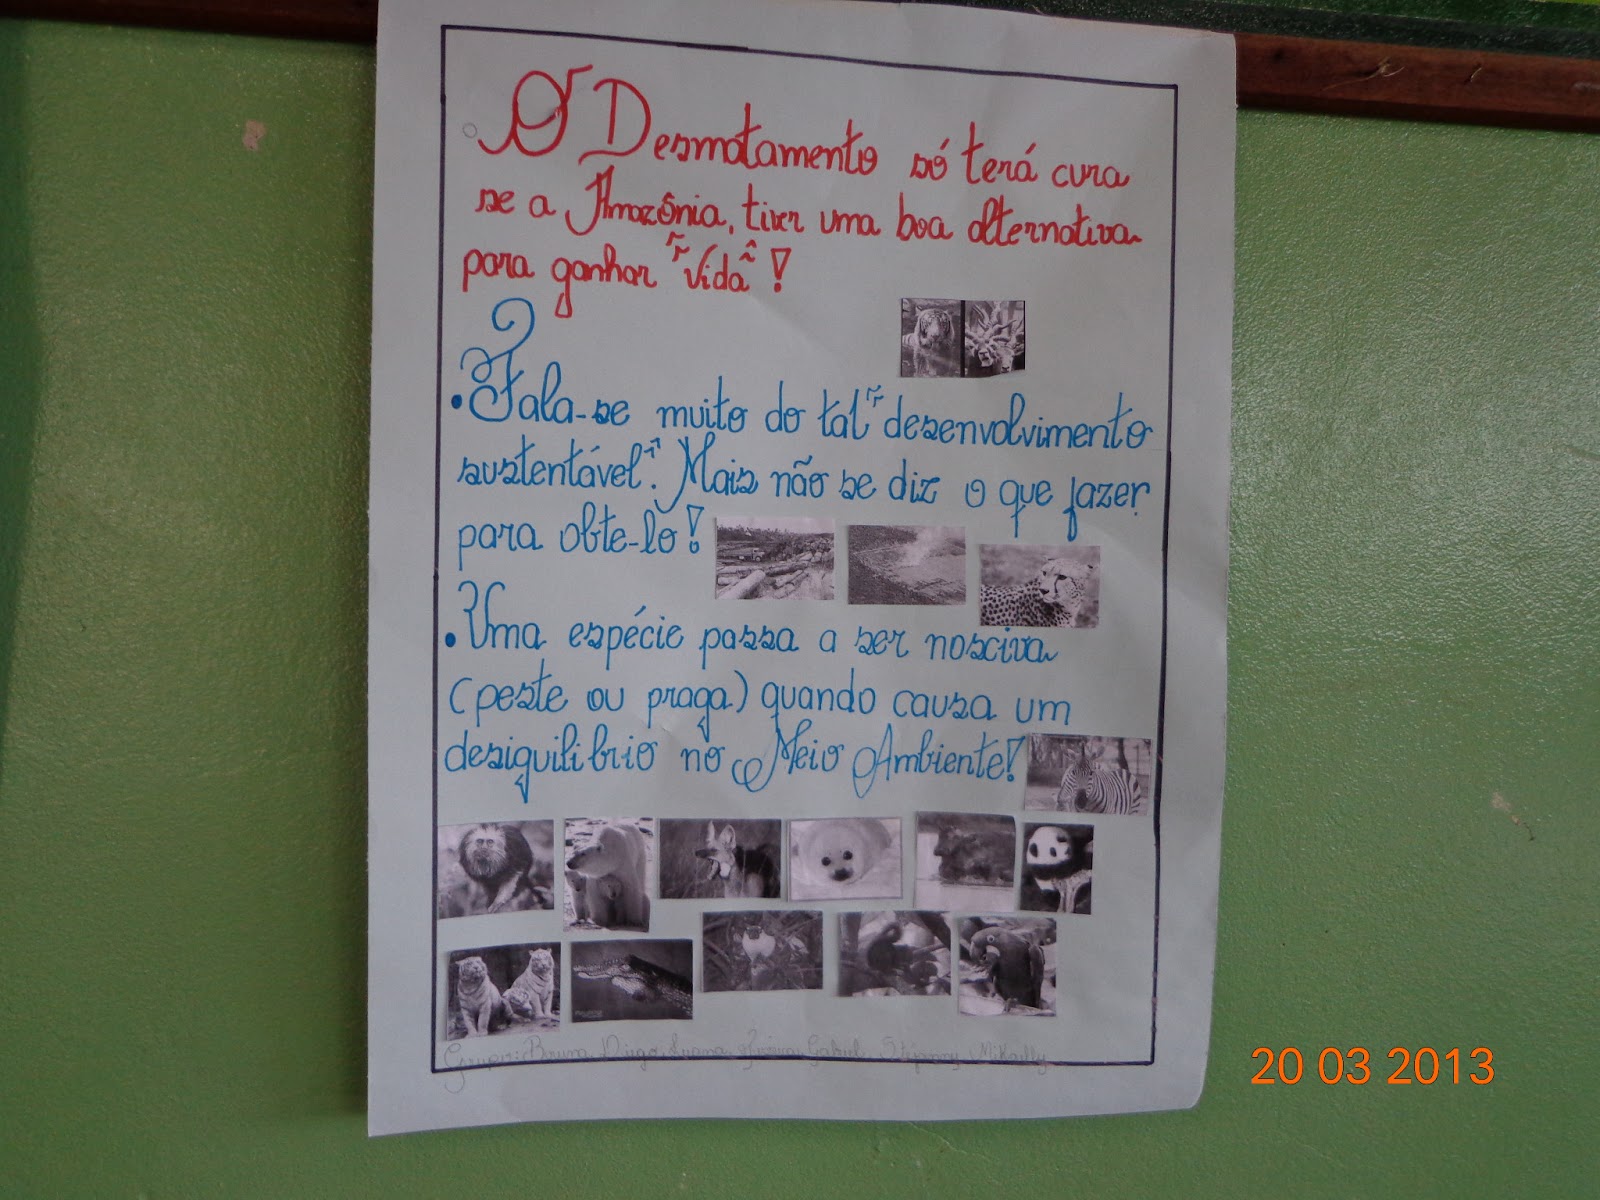 O Desmatamento só terá cura
se a Amazônia, tiver uma boa alternativa
para ganhar "Vida"!
• Fala-se muito do tal "desenvolvimento
sustentável". Mais não se diz o que fazer
para obte-lo!
• Uma espécie passa a ser nosciva
(peste ou praga) quando causa um
desiquilibrio no Meio Ambiente!
Bruna, Diego, Luana, Gabriel, Mikaelly
20 03 2013